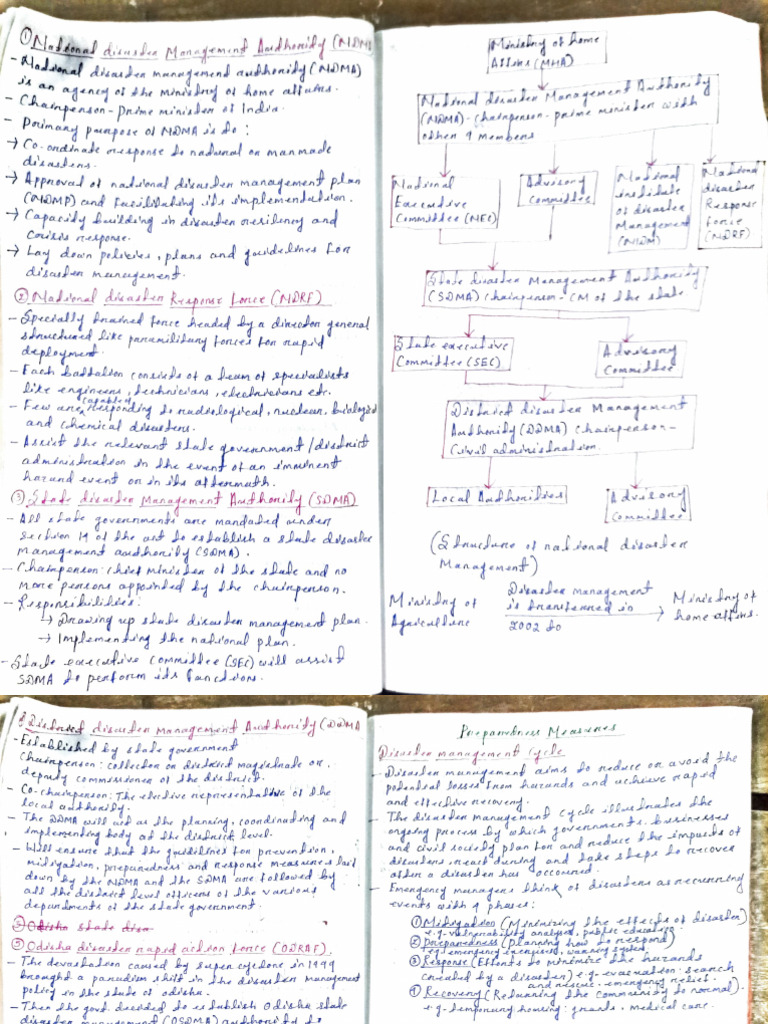 ① National disaster Management Authority (NDMA
- National disaster management authority (NDMA)
is an agency of the ministry of home affairs.
- Chairperson - prime minister of India.
- Primary purpose of NDMA is to :
→ Co-ordinate response to natural or manmade
disasters.
→ Approval of national disaster management plan
(NDMP) and facilitating its implementation.
→ Capacity building in disaster resiliency and
crisis response.
→ Lay down policies, plans and guidelines for
disaster management.
② National disaster Response force (NDRF)
- Specially trained force headed by a director general
structured like paramilitary forces for rapid
deployment.
- Each battalion consists of a team of specialists
like engineers, technicians, electricians etc.
- Few are capable responding to radiological, nuclear, biological
and chemical disasters.
- Assist the relevant state government / district
administration in the event of an imminent
hazard event or in its aftermath.
③ State disaster Management Authority (SDMA)
- All state governments are mandated under
section 14 of the act to establish a state disaster
management authority (SDMA).
- Chairperson: chief minister of the state and no
more persons appointed by the chairperson.
- Responsibilities:
↳ Drawing up state disaster management plan.
→ Implementing the national plan.
- State executive committee (SEC) will assist
SDMA to perform its functions.
Ministry of home
Affairs (MHA)
National disaster Management Authority
(NDMA) - chairperson - prime minister with
other 9 members
National
Executive
Committee (NEC)
Advisory
Committee
National
institute
of disaster
Management
(NIDM)
National
disaster
Response
force
(NDRF)
State disaster Management Authority
(SDMA) chairperson - CM of the state
State executive
Committee (SEC)
Advisory
Committee
District disaster Management
Authority (DDMA) chairperson -
Civil administration.
Local Authorities
Advisory
Committee
(Structure of national disaster
Management)
Ministry of
Agriculture
Disaster management
is transferred in
2002 to
→ Ministry of
home affairs.
District disaster management Authority (DDMA
- Established by state government
Chairperson: collector or district magistrate or
deputy commissioner of the district.
- Co-chairperson: The elective representative of the
local authority.
- The DDMA will act as the planning, coordinating and
implementing body at the district level.
- Will ensure that the guidelines for prevention,
mitigation, preparedness and response measures laid
down by the NDMA and the SDMA are followed by
all the district level officers of the various
departments of the state government.
⑤ Odisha state disa
⑤ Odisha disaster rapid action force (ODRAF)
- The devastation caused by super cyclone in 1999
brought a paradigm shift in the disaster management
policy in the state of odisha.
- Then the govt decided to establish Odisha state
disaster management (OSDMA) authority to
Preparedness Measures
Disaster management cycle
- Disaster management aims to reduce or avoid the
potential losses from hazards and achieve rapid
and effective recovery.
- The disaster management cycle illustrates the
ongoing process by which governments, businesses
and civil society plan for and reduce the impacts of
disasters, react during and take steps to recover
after a disaster has occurred.
- Emergency managers think of disasters as recurring
events with 4 phases:
① Mitigation (Minimizing the effects of disaster)
e.g - vulnerability analyses, public education.
② Preparedness (planning how to respond)
e.g emergency exercises, warning system
③ Response (Efforts to minimize the hazards
created by a disaster) e.g - evacuation - search
and rescue - emergency relief.
④ Recovery (Returning the community to normal).
e.g - temporary housing : grants, medical care.